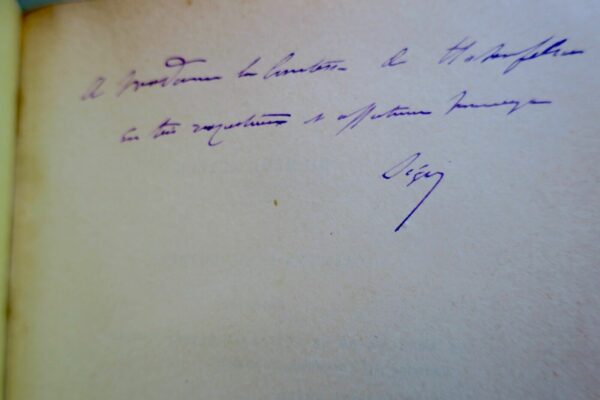 A Madame la Comtesse de
en très respectueux et affectueux hommage
Ségur